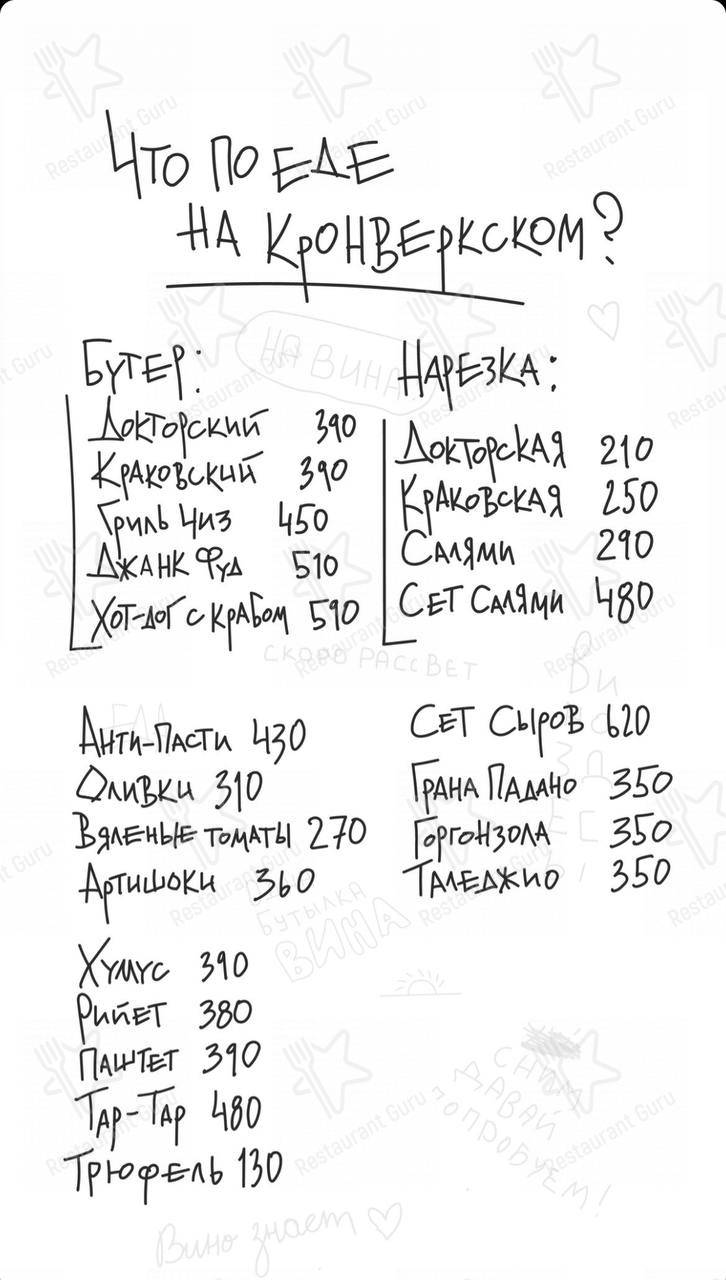 Что по еде
на Кронверкском?
Бутер:
Докторский 390
Краковский 390
Гриль чиз 450
Джанк Фуд 510
Хот-дог с крабом 590
Нарезка:
Докторская 210
Краковская 250
Салями 290
Сет салями 480
Анти-пасти 430
Оливки 310
Вяленые томаты 270
Артишоки 360
Сет сыров 620
Грана Падано 350
Горгонзола 350
Таледжио 350
Хумус 390
Рийет 380
Паштет 390
Тар-Тар 480
Трюфель 130
на вина
скоро рассвет
бутылка
вина
давай
попробуем!
Вино знает
Restaurant Guru